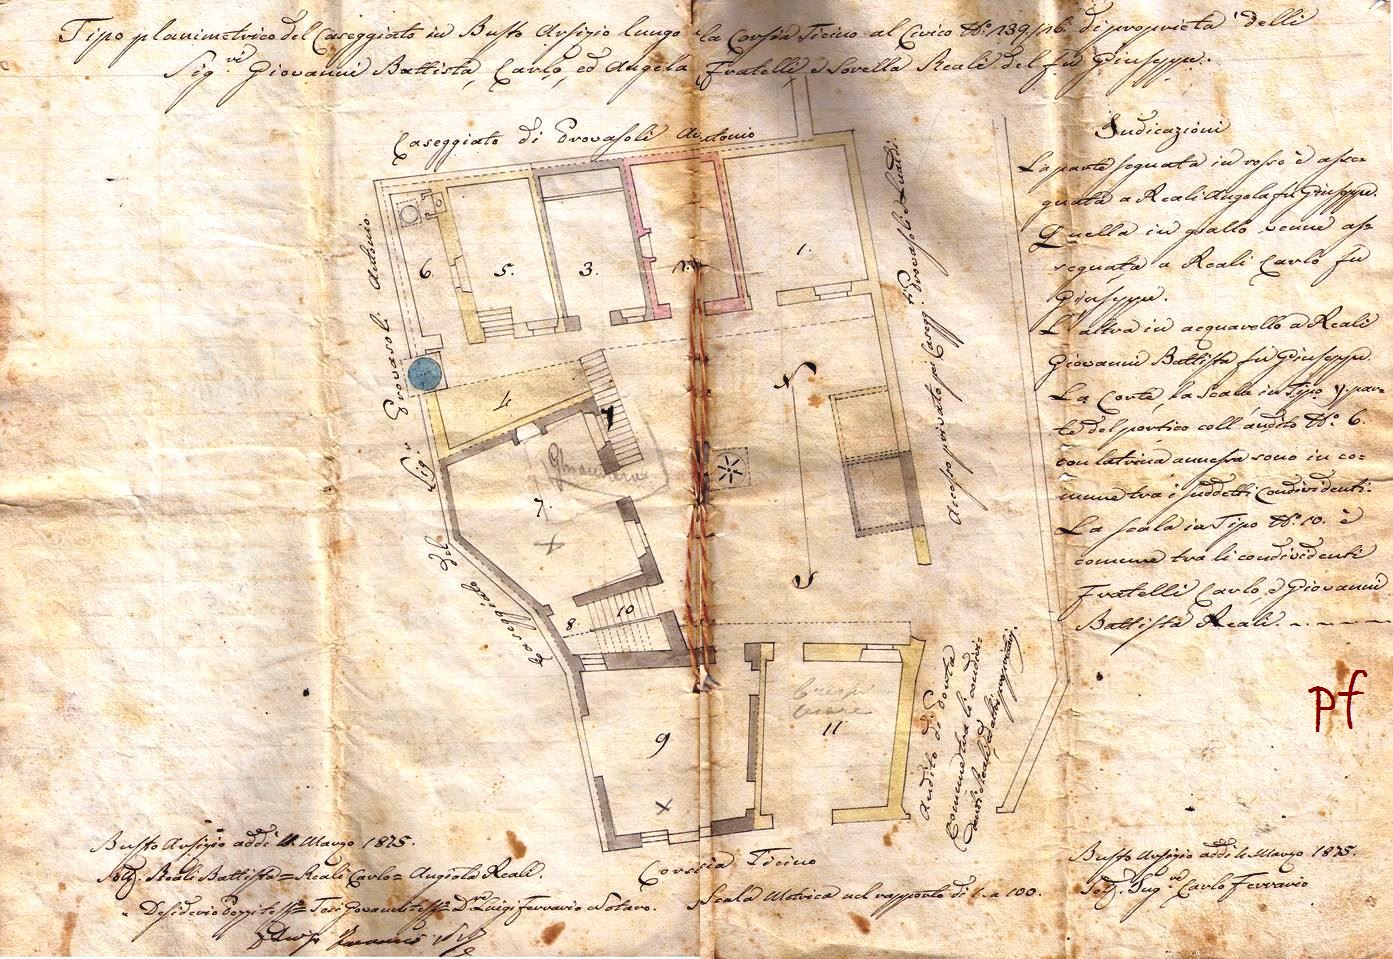 Tipo planimetrico del Caseggiato in Busto Arsizio lungo la Corsia Ticino al Civico N° 139/116 di proprietà delli
Sig.ri Giovanni Battista, Carlo, ed Angela Fratelli e Sorella Reali del fu Giuseppe.
Caseggiato di Provasoli Antonio
Indicazioni
La parte segnata in rosso è asse-
gnata a Reali Angela fu Giuseppe.
Quella in giallo venne as-
segnata a Reali Carlo fu
Giuseppe.
L'altra in acquarello a Reali
Giovanni Battista fu Giuseppe.
La Corte, la Scala in Tipo y. par-
te del portico coll'andito N° 6.
con latrina annessa sono in co-
mune tra i suddetti Condividenti.
La scala in Tipo N° 10. è
comune tra li condividenti
Fratelli Carlo, e Giovanni
Battista Reali.
pf
Provasoli Antonio.
Caseggiato
Accesso privato pei Casegg.ti Provasoli e Lualdi
6.
5.
3.
1.
4
7.
8.
10
9
11
N
S
X
X
Crespi
Cesare
Andito di Porta
Comune tra li condivi-
denti Reali, ed altri proprietarj.
Corsia Ticino
Scala Metrica nel rapporto di 1. a 100.
Busto Arsizio addì 11 Marzo 1875.
Sott. Reali Battista = Reali Carlo = Angiola Reali.
Luigi Ferrario Notaro.
Busto Arsizio addì 11 Marzo 1875.
Sott. Ing.re Carlo Ferrario